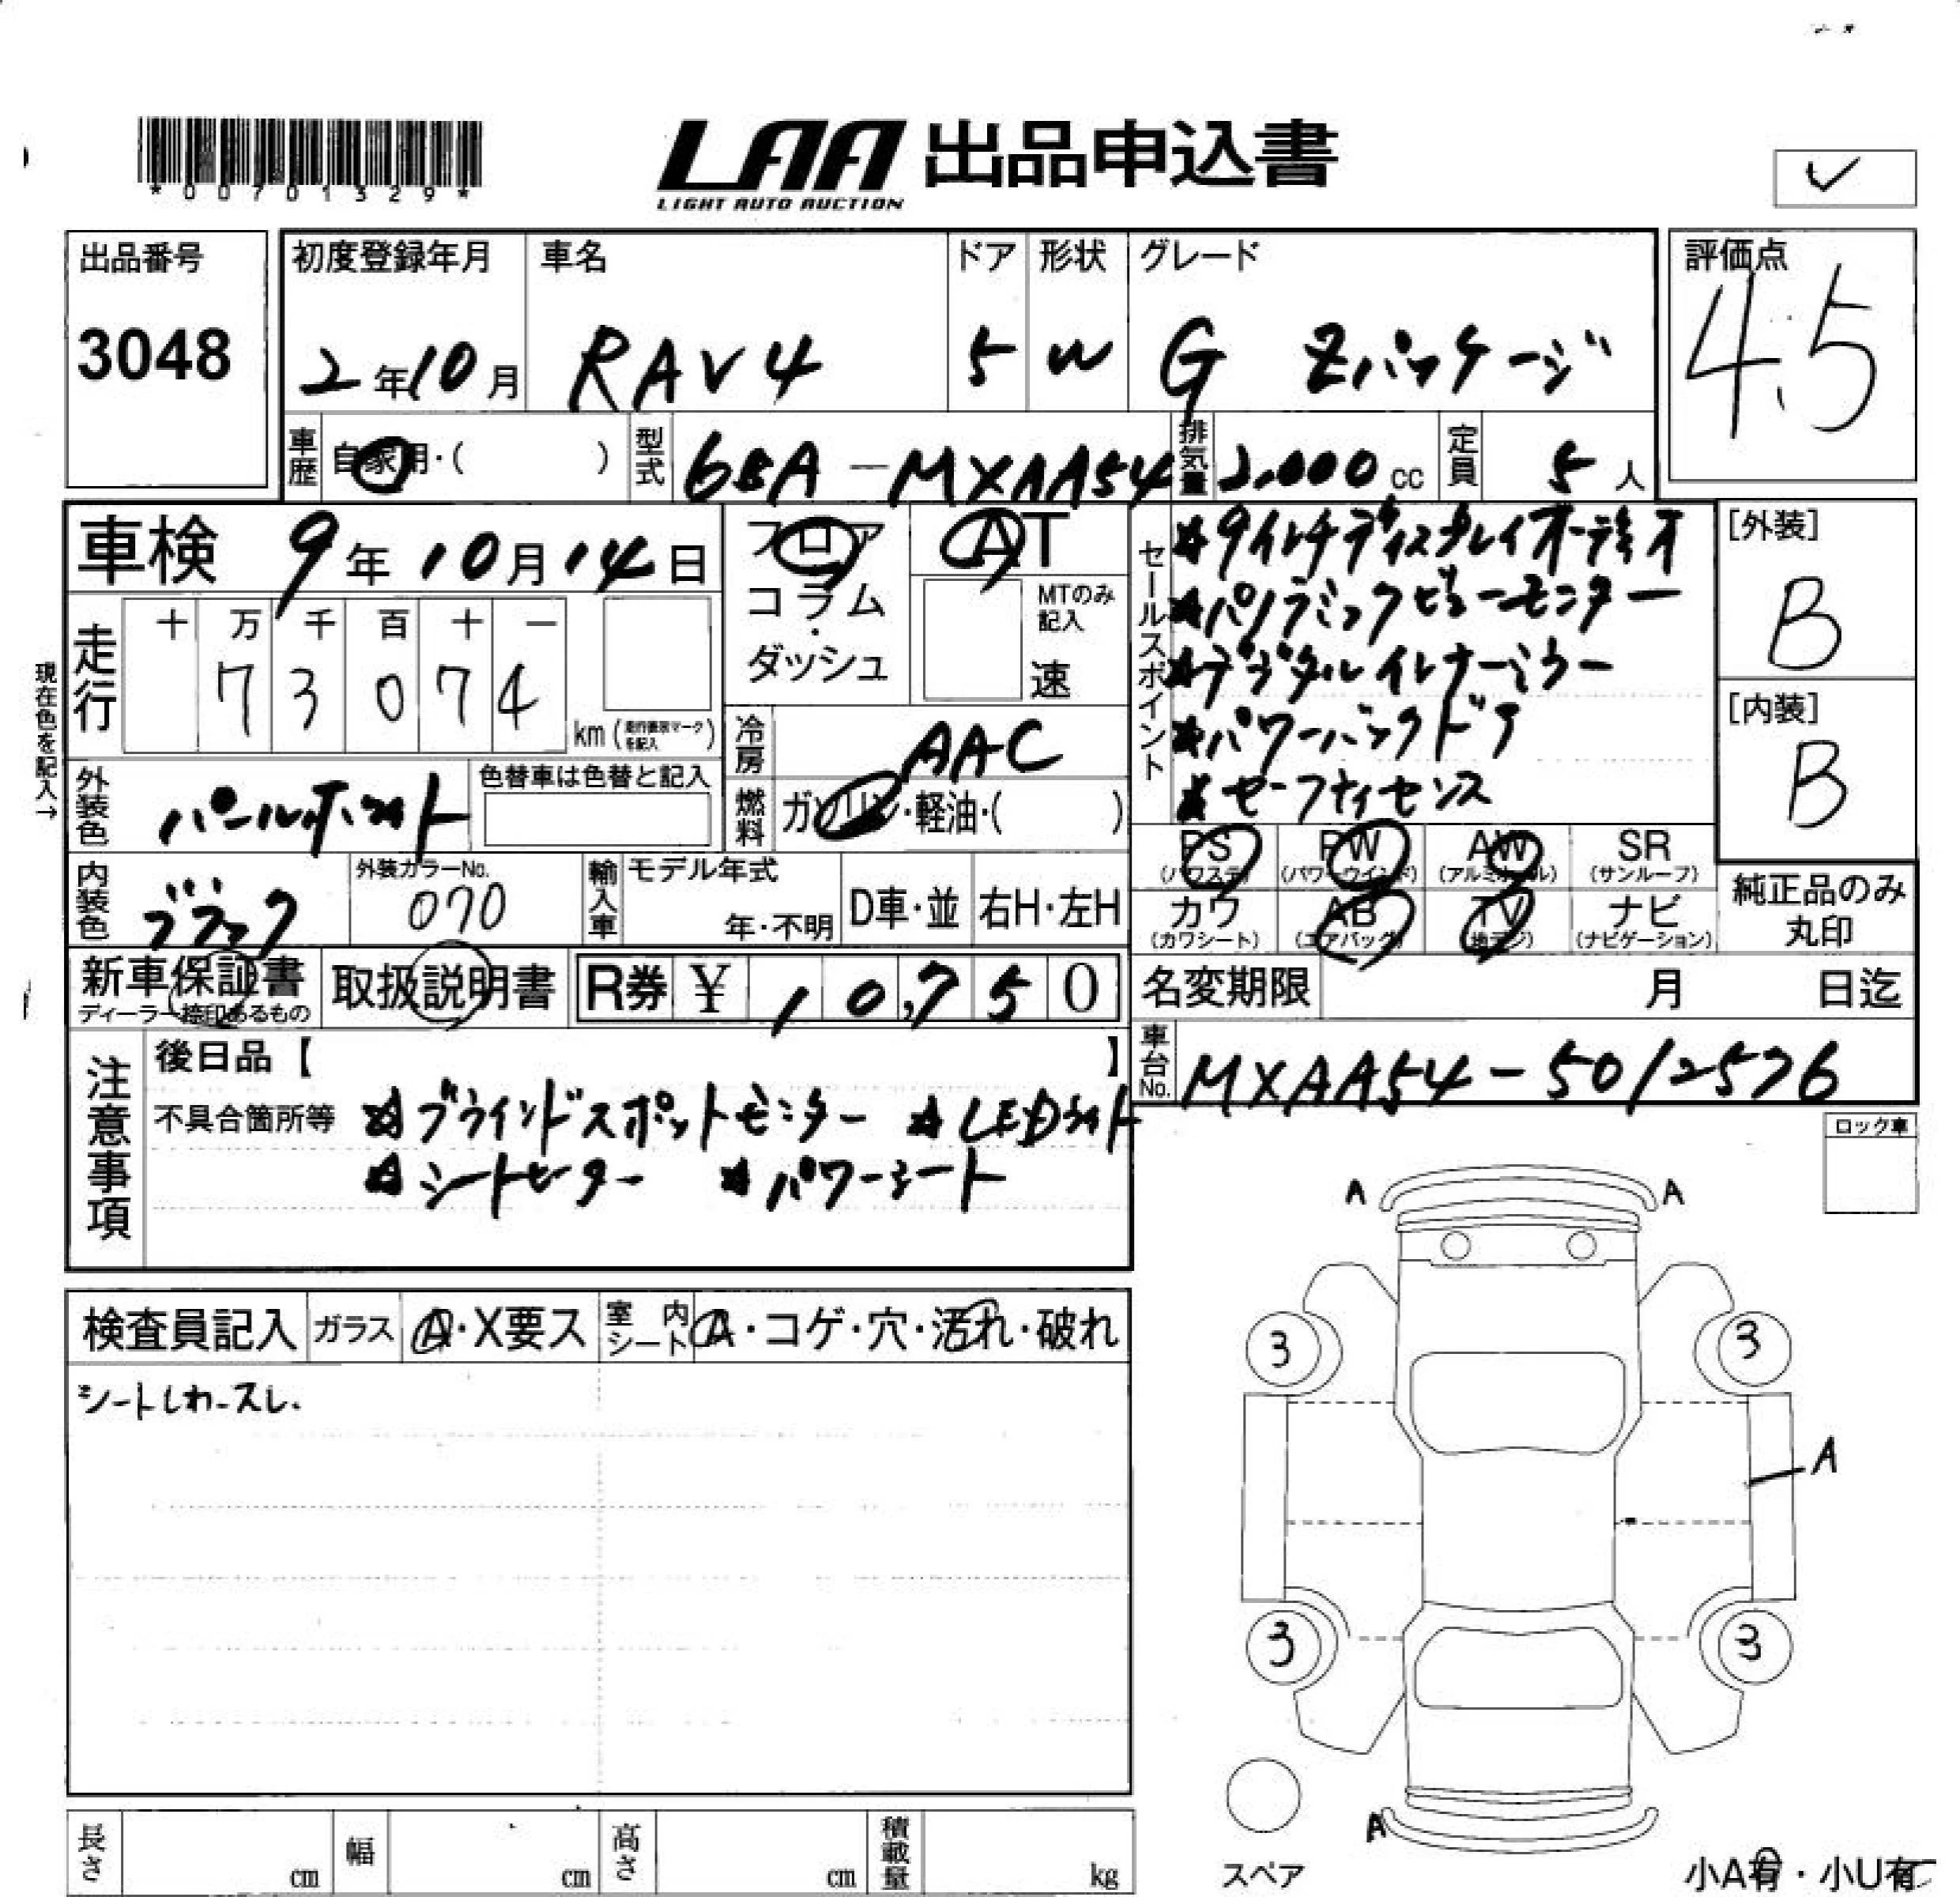 *00701329*
LAA 出品申込書
LIGHT AUTO AUCTION
出品番号
3048
初度登録年月
2年10月
車名
RAV4
ドア
5
形状
W
グレード
G Zパッケージ
評価点
4.5
車歴
自家用・( )
型式
6BA-MXAA54
排気量
2,000cc
定員
5人
車検 9年10月14日
フロア
コラム
・
ダッシュ
AT
MTのみ
記入
速
セールスポイント
☆9インチディスプレイオーディオ
☆パノラミックビューモニター
☆デジタルインナーミラー
☆パワーバックドア
☆セーフティセンス
[外装]
B
[内装]
B
現在色を記入→
走行
十 万 千 百 十 一
7 3 0 7 4
km(走行書換マークを記入)
冷房
AAC
燃料
ガソリン・軽油・( )
外装色
パールホワイト
色替車は色替と記入
内装色
ブラック
外装カラーNo.
070
輸入車
モデル年式
年・不明
D車・並
右H・左H
PS
(パワステ)
PW
(パワーウインド)
AW
(アルミホイール)
SR
(サンルーフ)
カワ
(カワシート)
AB
(エアバッグ)
TV
(地デジ)
ナビ
(ナビゲーション)
純正品のみ
丸印
新車保証書
ディーラー捺印あるもの
取扱説明書
R券 ¥ 10,750
名変期限 月 日迄
車台No.
MXAA54-5012576
注意事項
後日品【 】
不具合箇所等 ☆ブラインドスポットモニター ☆LEDライト
☆シートヒーター ☆パワーシート
ロック車
A A
検査員記入
ガラス
A・X要ス
室内
シート
A・コゲ・穴・汚れ・破れ
シートしわ-スレ.
3 3
A
3 3
A
スペア
小A有・小U有
長さ cm
幅 cm
高さ cm
積載量 kg